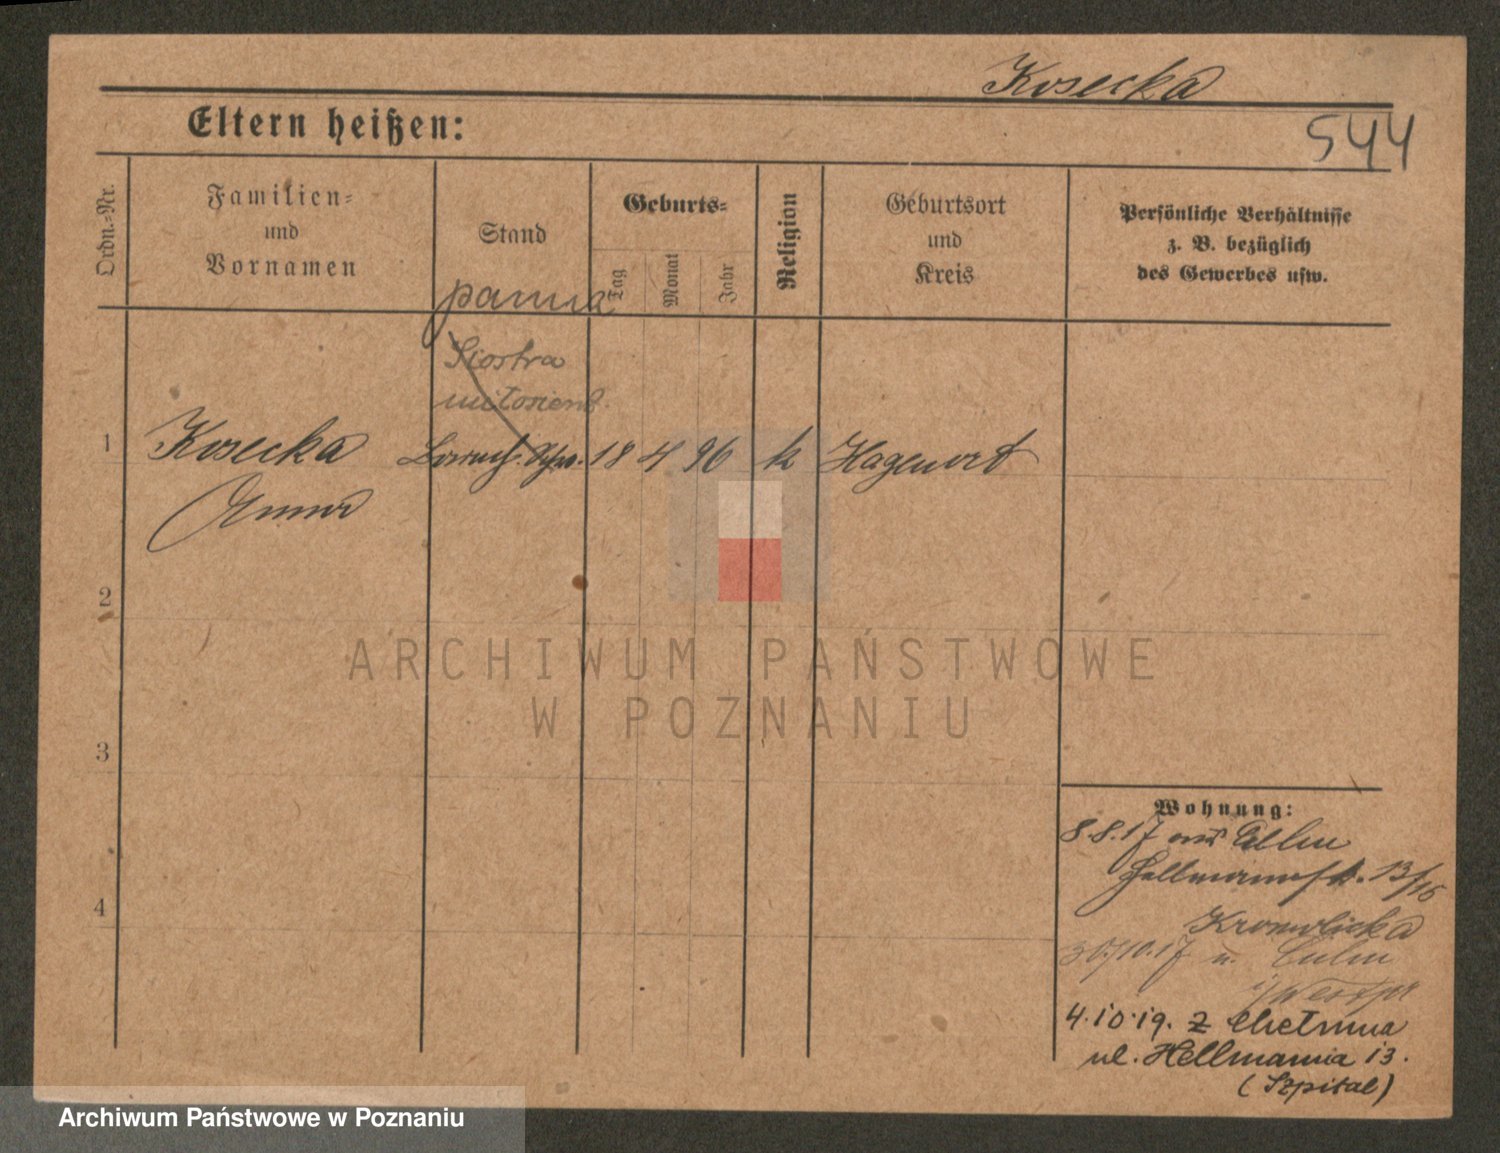 Kosecka
544
Eltern heißen:
Ordn.-Nr.
Familien-
und
Vornamen
Stand
Geburts-
Tag
Monat
Jahr
Religion
Geburtsort
und
Kreis
Persönliche Verhältnisse
z. B. bezüglich
des Gewerbes usw.
panna
Siostra
miłosierd.
1 Kosecka 18 4 96 k Hagenort
Anna
2
3
4
Wohnung:
8.8.17 aus Culm
Hellmannstr. 13/16
30/10.17 n. Culm
i/Westpr
4.10.19. z Chełmna
ul. Hellmannia 13.
(Szpital)
ARCHIWUM PAŃSTWOWE
W POZNANIU
Archiwum Państwowe w Poznaniu